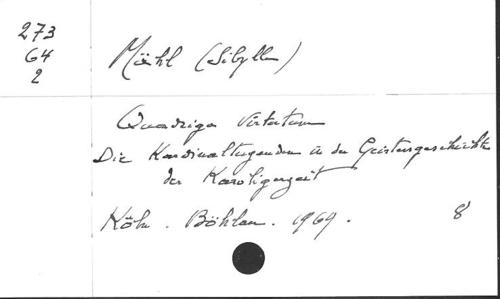 273
64
2
Mähl (Sibylle)
Quadriga Virtutum
Die Kardinaltugenden in der Geistesgeschichte
der Karoligerzeit
Köln. Böhlau. 1969.
8°